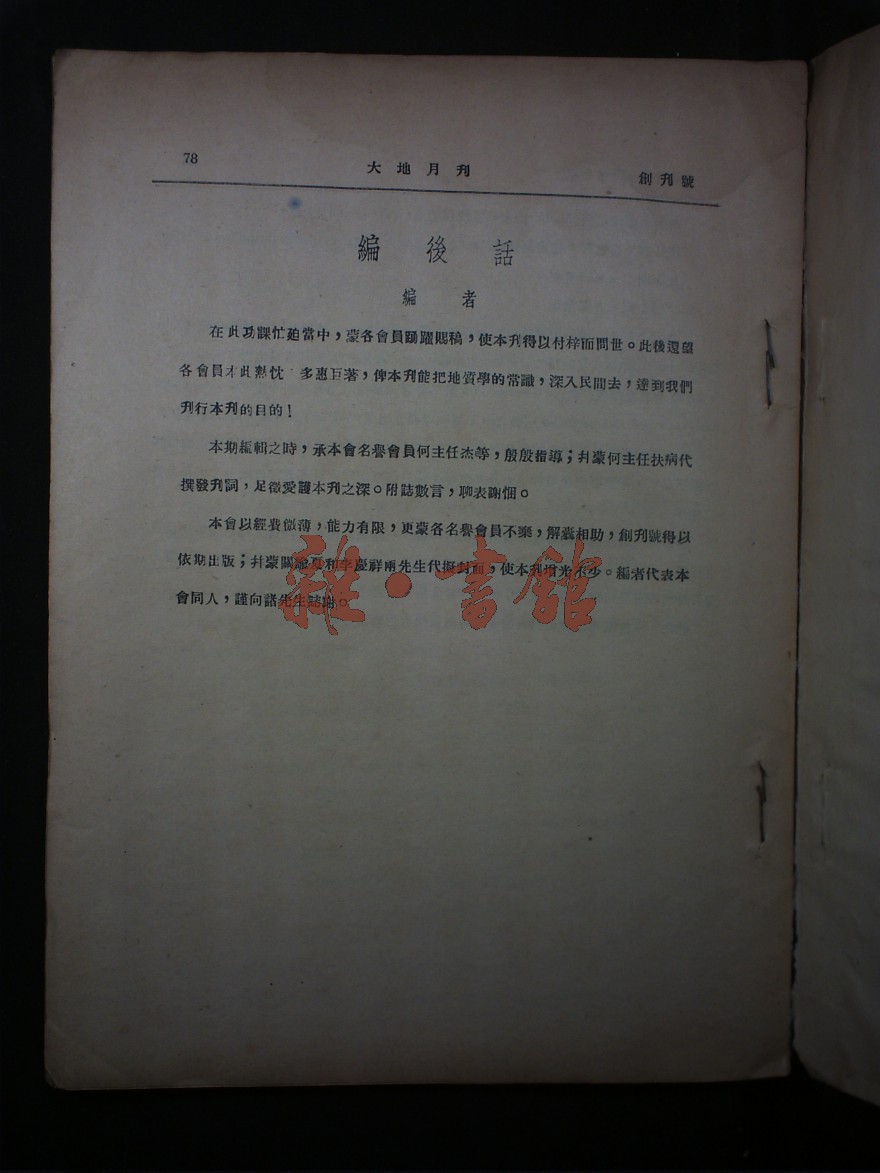 78
大地月刊
創刊號
編後話
編者
在此功課忙廹當中，蒙各會員踴躍賜稿，使本刋得以付梓而問世。此後還望
各會員本此熱忱 多惠巨著，俾本刋能把地質學的常識，深入民間去，達到我們
刋行本刋的目的！
本期編輯之時，承本會名譽會員何主任杰等，殷殷指導；幷蒙何主任扶病代
撰發刋詞，足徵愛護本刋之深。附誌數言，聊表謝悃。
本會以經費微薄，能力有限，更蒙各名譽會員不棄，解囊相助，創刋號得以
依期出版；幷蒙關 和李慶祥兩先生代擬封面，使本刋增光不少。編者代表本
會同人，謹向諸先生誌謝。
雜·書館